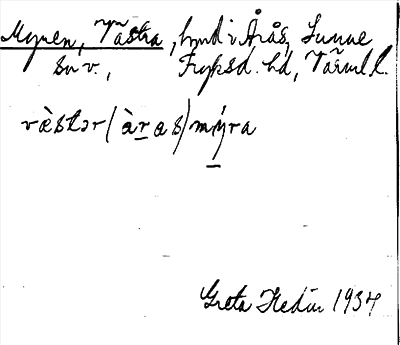 Myren, Västra, hmd i Årås, Sunne
sn v., Fryksd. hd, Värml. l.
væ̀stər(àras)mýra
Greta Hedin 1934